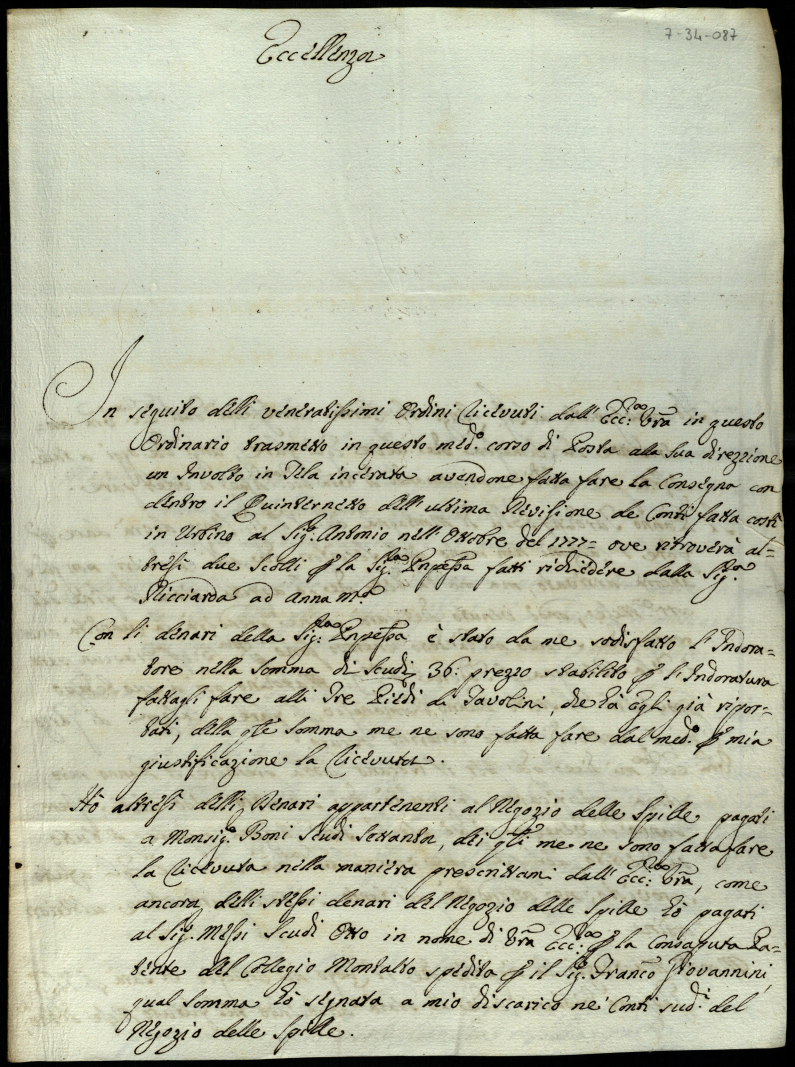 7-34-087
Eccellenza
In seguito delli veneratissimi Ordini ricevuti dall' Ecc:za Vra in questo
Ordinario trasmetto in questo med:o corso di Posta alla sua direzzione
un Involto in Tela incerata avendone fatta fare la Consegna con
dentro il Quinternetto dell'ultima Revisione de Conti fatta costì
in Urbino al Sig:r Antonio nell'Ottobre del 1777= ove ritroverà al=
tresì due Scolli p la Sig:ra Pnpessa fatti richiedere dalla Sig:ra
Ricciarda ad Anna M:a
Con li denari della Sig:ra Pnpessa è stato da me sodisfatto l'Indora=
tore nella somma di Scudi 36: prezzo stabilito p l'Indoratura
fattagli fare alli Tre Piedi di Tavolini, che hà egli già ripor=
tati, della qle somma me ne sono fatta fare dal med:o p mia
giustificazione la ricevuta.
Hò altresì delli Denari appartenenti al Negozio delle Spille pagati
a Monsig:r Boni Scudi Settanta, dei qli me ne sono fatta fare
la ricevuta nella maniera prescrittami dall' Ecc:za Vra, come
ancora delli stessi denari del Negozio delle Spille hò pagati
al Sig:r Messi Scudi Otto in nome di Vra Ecc:za p la consaputa Pa=
tente del Collegio Montalto spedita p il Sig:r Franco Giovannini,
qual somma hò segnata a mio discarico ne' Conti sud:i del
Negozio delle Spille.